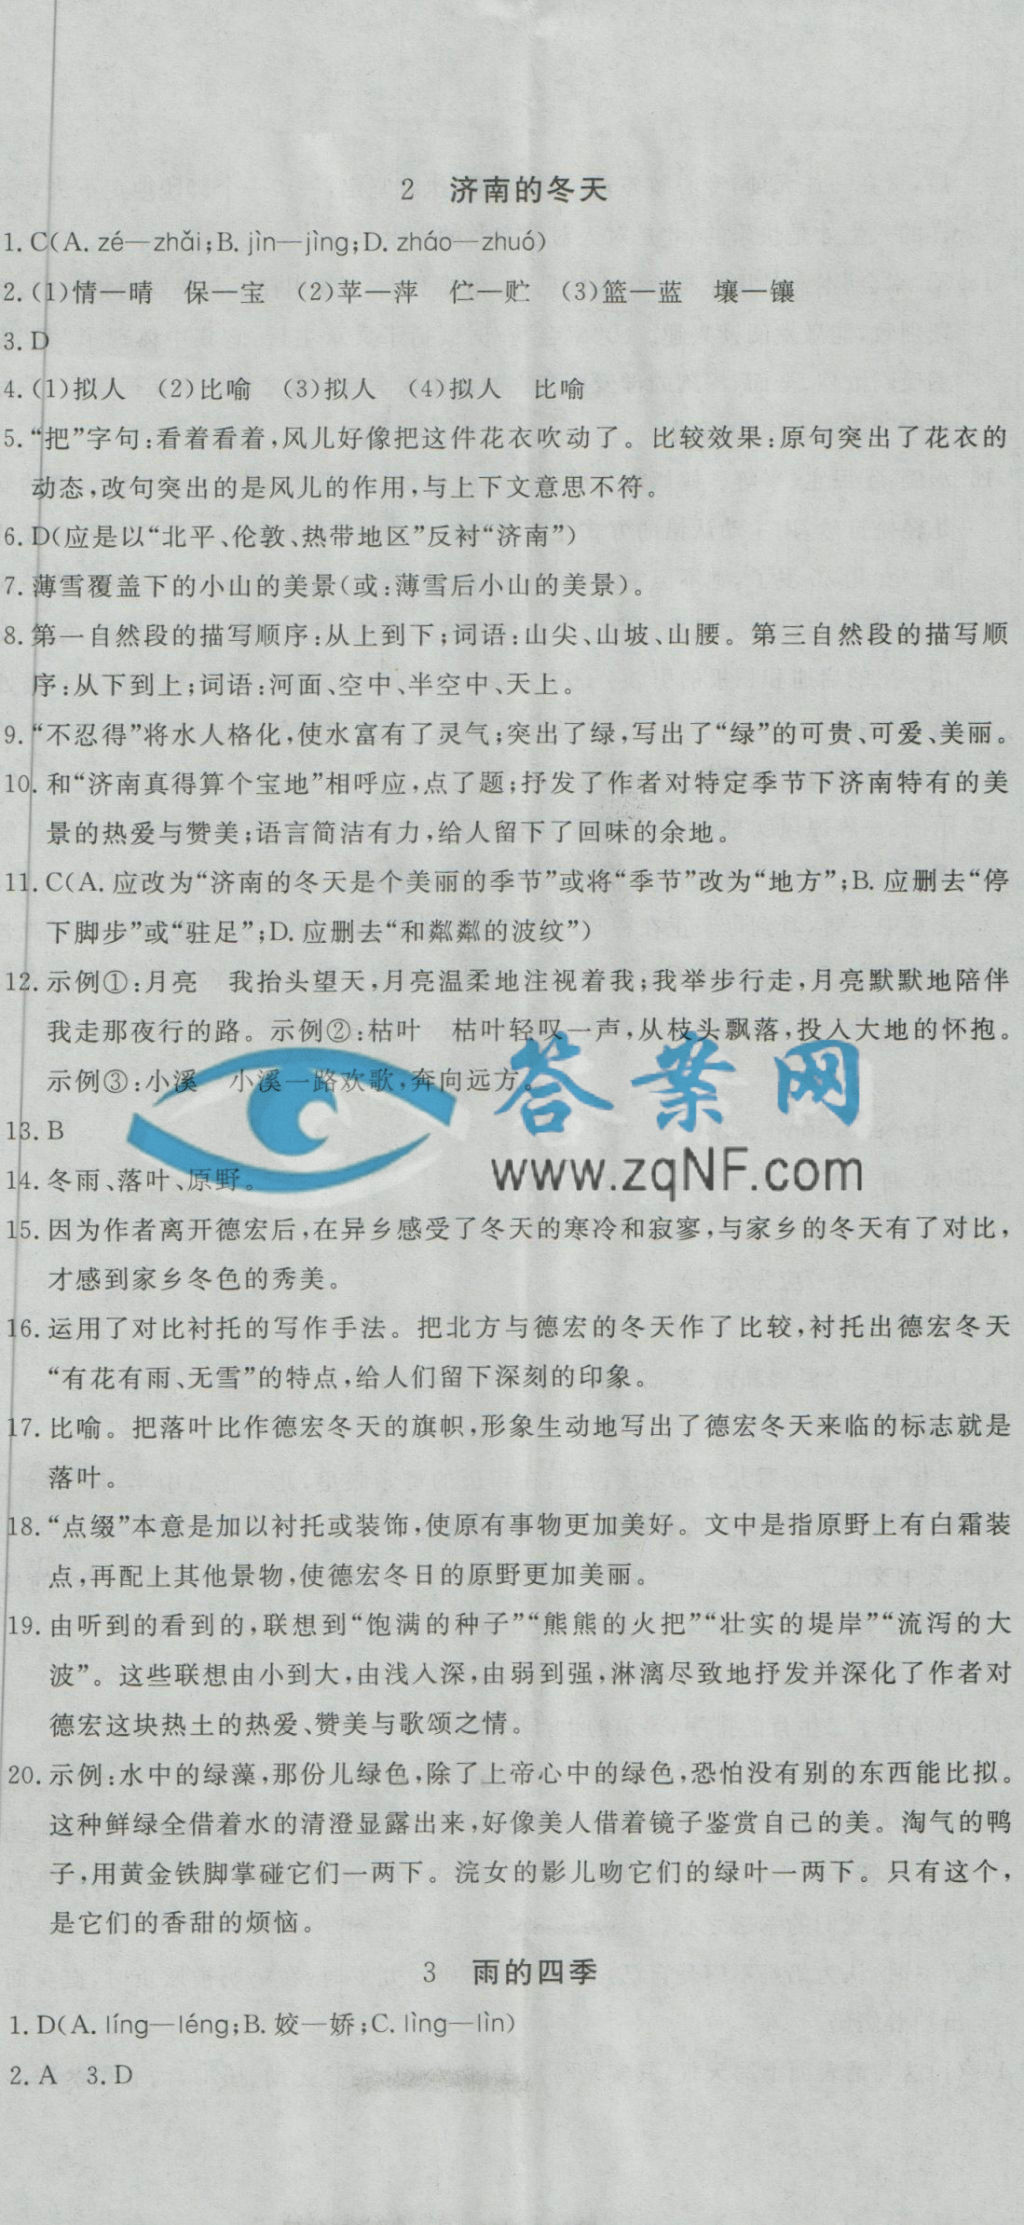 2 济南的冬天
1. C(A. zé—zhǎi;B. jìn—jìng;D. zháo—zhuó)
2. (1)情—晴 保—宝 (2)苹—萍 伫—贮 (3)篮—蓝 壤—镶
3. D
4. (1)拟人 (2)比喻 (3)拟人 (4)拟人 比喻
5. “把”字句:看着看着,风儿好像把这件花衣吹动了。比较效果:原句突出了花衣的
动态,改句突出的是风儿的作用,与上下文意思不符。
6. D(应是以“北平、伦敦、热带地区”反衬“济南”)
7. 薄雪覆盖下的小山的美景(或:薄雪后小山的美景)。
8. 第一自然段的描写顺序:从上到下;词语:山尖、山坡、山腰。第三自然段的描写顺
序:从下到上;词语:河面、空中、半空中、天上。
9. “不忍得”将水人格化,使水富有了灵气;突出了绿,写出了“绿”的可贵、可爱、美丽。
10. 和“济南真得算个宝地”相呼应,点了题;抒发了作者对特定季节下济南特有的美
景的热爱与赞美;语言简洁有力,给人留下了回味的余地。
11. C(A. 应改为“济南的冬天是个美丽的季节”或将“季节”改为“地方”;B. 应删去“停
下脚步”或“驻足”;D. 应删去“和粼粼的波纹”)
12. 示例①:月亮 我抬头望天,月亮温柔地注视着我;我举步行走,月亮默默地陪伴
我走那夜行的路。示例②:枯叶 枯叶轻叹一声,从枝头飘落,投入大地的怀抱。
示例③:小溪 小溪一路欢歌,奔向远方。
答案网
13. B
www.zqNF.com
14. 冬雨、落叶、原野。
15. 因为作者离开德宏后,在异乡感受了冬天的寒冷和寂寥,与家乡的冬天有了对比,
才感到家乡冬色的秀美。
16. 运用了对比衬托的写作手法。把北方与德宏的冬天作了比较,衬托出德宏冬天
“有花有雨、无雪”的特点,给人们留下深刻的印象。
17. 比喻。把落叶比作德宏冬天的旗帜,形象生动地写出了德宏冬天来临的标志就是
落叶。
18. “点缀”本意是加以衬托或装饰,使原有事物更加美好。文中是指原野上有白霜装
点,再配上其他景物,使德宏冬日的原野更加美丽。
19. 由听到的看到的,联想到“饱满的种子”“熊熊的火把”“壮实的堤岸”“流泻的大
波”。这些联想由小到大,由浅入深,由弱到强,淋漓尽致地抒发并深化了作者对
德宏这块热土的热爱、赞美与歌颂之情。
20. 示例:水中的绿藻,那份儿绿色,除了上帝心中的绿色,恐怕没有别的东西能比拟。
这种鲜绿全借着水的清澄显露出来,好像美人借着镜子鉴赏自己的美。淘气的鸭
子,用黄金铁脚掌碰它们一两下。浣女的影儿吻它们的绿叶一两下。只有这个,
是它们的香甜的烦恼。
3 雨的四季
1. D(A. líng—léng;B. 姣—娇;C. lìng—lìn)
2. A 3. D